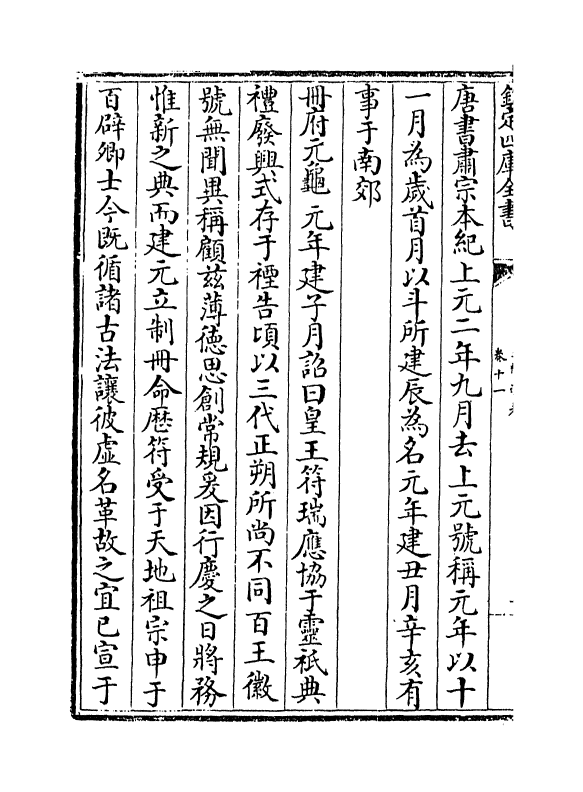 欽定四庫全書
卷十一
唐書肅宗本紀上元二年九月去上元號稱元年以十
一月為歲首月以斗所建辰為名元年建丑月辛亥有
事于南郊
冊府元龜 元年建子月詔曰皇王符瑞應協于靈祇典
禮廢興式存于禋告頃以三代正朔所尚不同百王徽
號無聞異稱顧兹薄德思創常規爰因行慶之日將務
惟新之典而建元立制冊命厯符受于天地祖宗申于
百辟卿士今既循諸古法讓彼虚名革故之宜已宣于